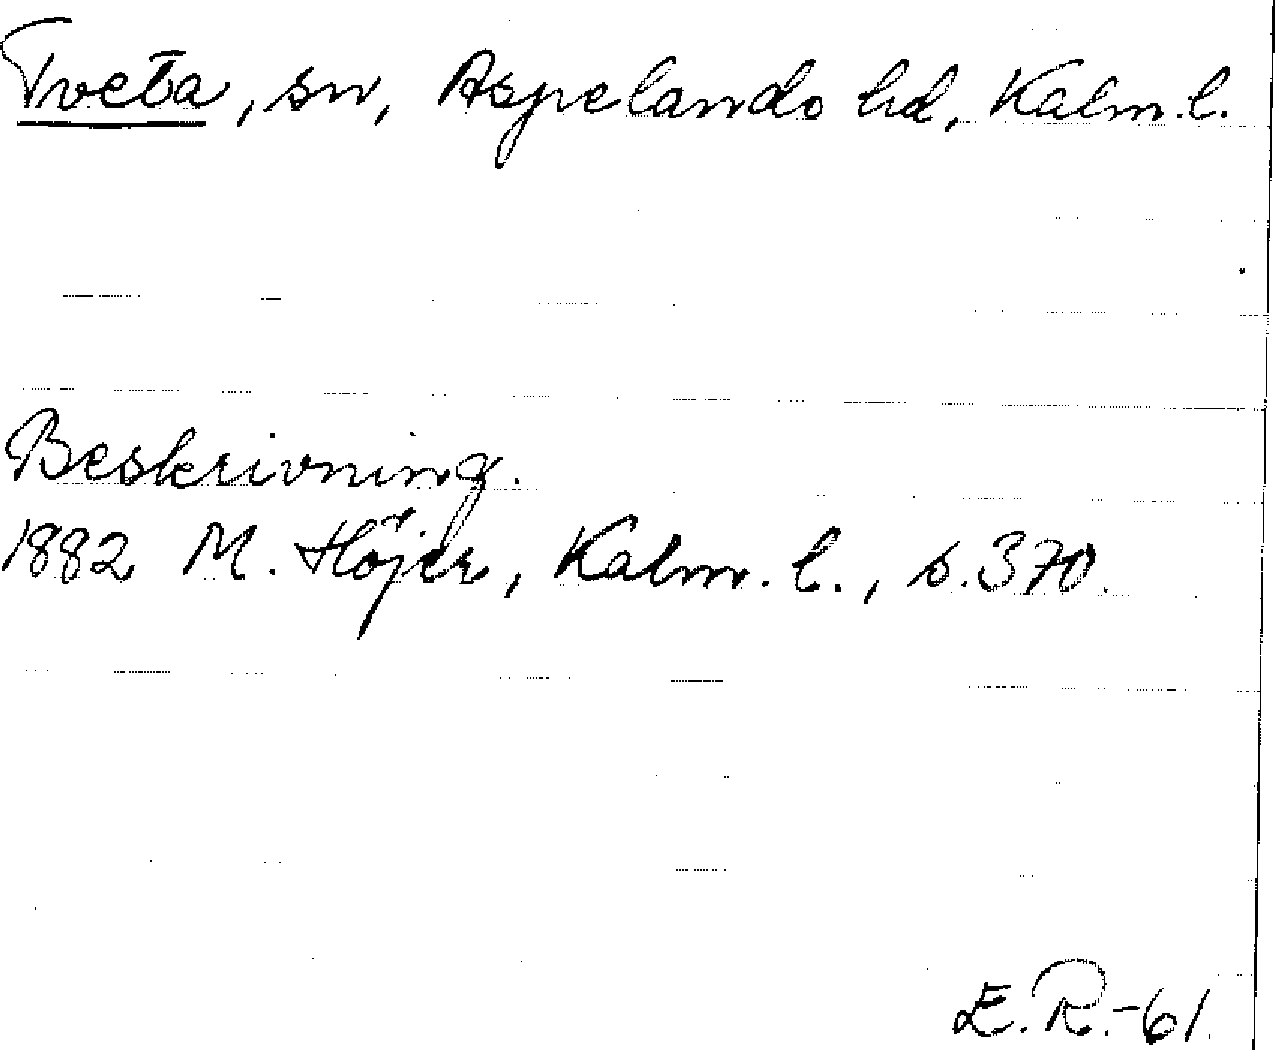 Tveta, sn, Aspelands hd, Kalm. l.
Beskrivning.
1882 M. Höjer, Kalm. l., s. 370.
E. R. -61.